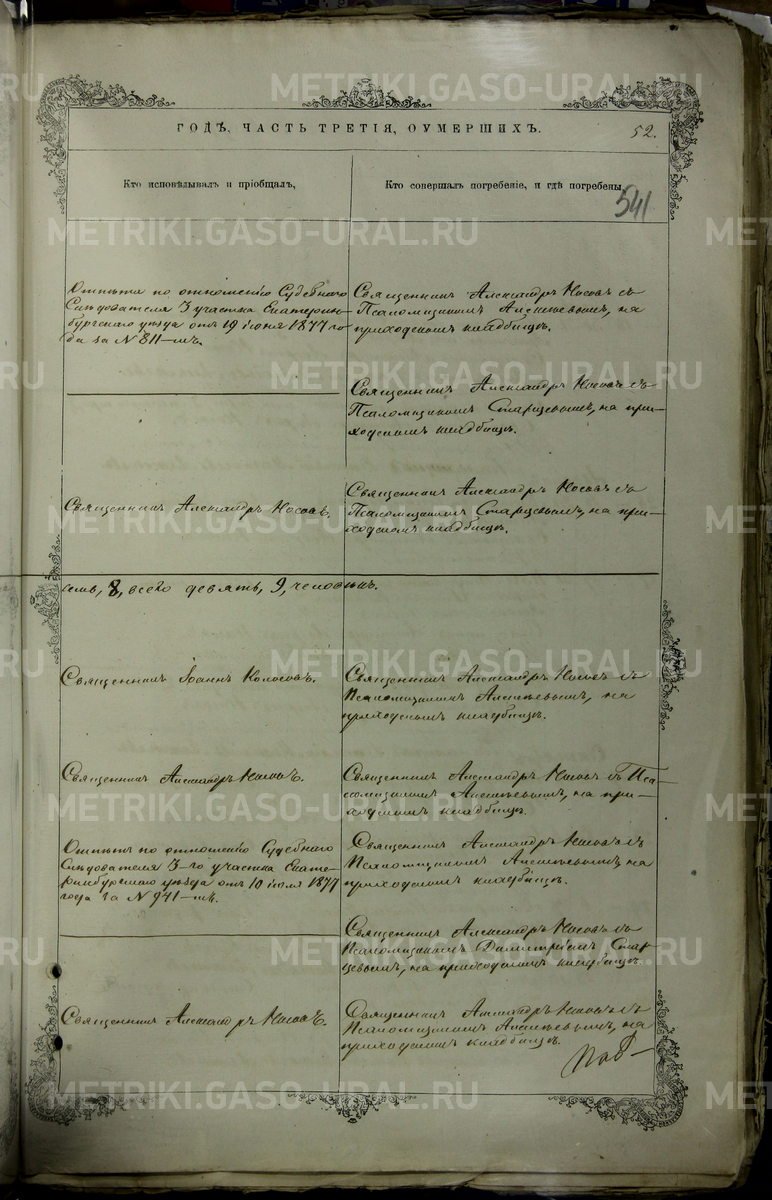 ГОДѢ, ЧАСТЬ ТРЕТІЯ, ОУМЕРШИХЪ.
52.
Кто исповѣдывалъ и пріобщалъ,
Кто совершалъ погребеніе, и гдѣ погребены
541
Отпѣта по отношенію Судебнаго
Слѣдователя 3 участка Екатерин-
бургскаго уѣзда отъ 19 іюня 1877 го
да за № 811-мъ.
Священникъ Александръ Носовъ съ
Псаломщикомъ Алексѣевымъ, на
приходскомъ кладбищѣ.
Священникъ Александръ Носовъ съ
Псаломщикомъ Старцевымъ, на при-
ходскомъ кладбищѣ.
Священникъ Александръ Носовъ.
Священникъ Александръ Носовъ съ
Псаломщикомъ Старцевымъ, на при-
ходскомъ кладбищѣ.
семь, 8, всего девять, 9, человѣкъ.
Священникъ Іоаннъ Колосовъ.
Священникъ Александръ Носовъ съ
Псаломщикомъ Алексѣевымъ, на
приходскомъ кладбищѣ.
Священникъ Александръ Носовъ.
Священникъ Александръ Носовъ съ Пса-
ломщикомъ Алексѣевымъ, на при-
ходскомъ кладбищѣ.
Отпѣтъ по отношенію Судебнаго
Слѣдователя 3-го участка Екате-
ринбургскаго уѣзда отъ 10 іюля 1877
года за № 941-мъ.
Священникъ Александръ Носовъ съ
Псаломщикомъ Алексѣевымъ на
приходскомъ кладбищѣ.
Священникъ Александръ Носовъ съ
Псаломщикомъ Димитріемъ Стар
цевымъ, на приходскомъ кладбищѣ.
Священникъ Александръ Носовъ.
Священникъ Александръ Носовъ съ
Псаломщикомъ Алексѣевымъ, на
приходскомъ кладбищѣ.
METRIKI.GASO-URAL.RU